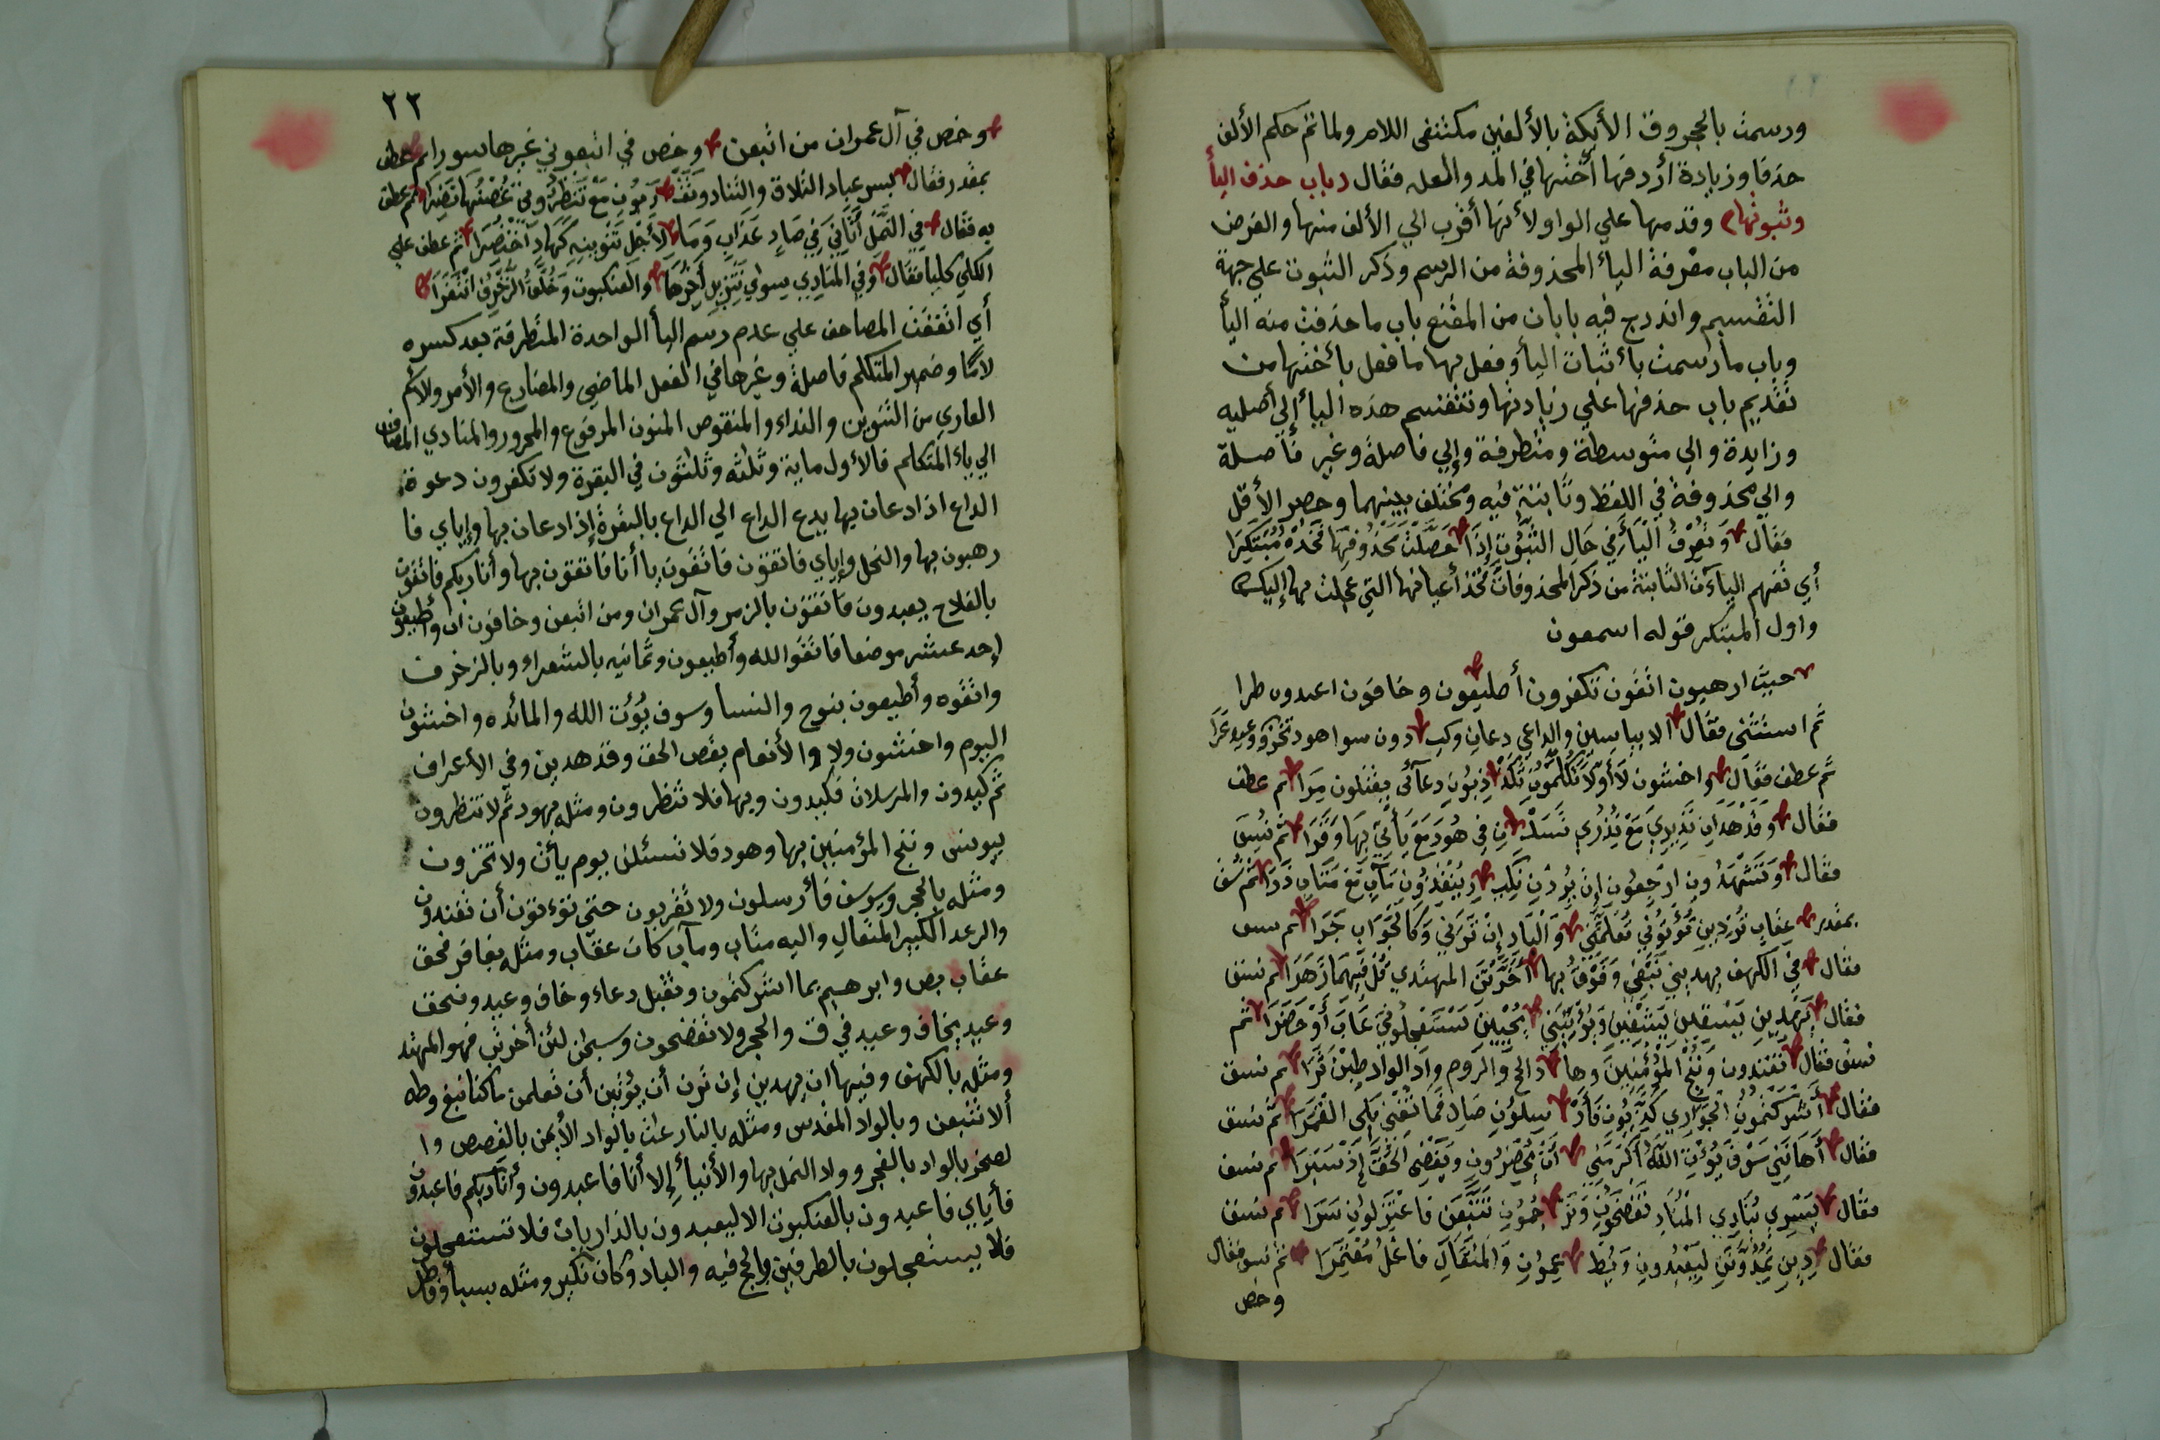 ورسمت بالحجر وق الأيكة بالألفين مكتنفى اللام ولما تم حكم الألف
حذفا وزيادة أردفها أختها في المد والعله فقال باب حذف اليأ
وثبوتها وقدمها علي الواو لأنها أقرب الي الألف منها والغرض
من الباب معرفة اليأ المحذوفة من الرسم وذكر الثبوت علي جهة
التقسيم واندرج فيه بابان من المقنع باب ما حذفت منه اليأ
وباب ما رسمت بأثبات اليأ وفعل بها ما فعل بأختها من
تقديم باب حذفها علي زيادتها وتنقسم هذه اليأ إلي أصليه
وزايدة والي متوسطة ومتطرفة وإلي فاصلة وغير فاصلة
والي محذوفة في اللفظ وثابتة فيه ومختلف بينهما وحصر الأقل
فقال وَتَعْرِفُ الْيَأَ فِي حَالِ الثُّبُوْتِ إِذَا حَصَّلْتَ مَحْذُوفَهَا فَخُذْهُ مُبْتَكِرَا
أي تفهم الياءت الثابتة من ذكر المحذوفات فخذ أعيانها التي عجلت بها إليك
واول المبتكر قوله اسمعون
حيث ارهبون اتقون تكفرون أطيعون وخافون اعبدون طرا
ثم استثنى فقال الا بياسين والداعي دعان وكيدون سوا هود تخزو وعيد عرا
ثم عطف فقال واخشون لا أولا تكلمون يكذبون أولي دعائي يقتلون مرا ثم عطف
فقال وقد هدان نذيري مع نذري تسئلن في هود مع يأتي بها وقرا ثم نسق
فقال وتشهدون ارجعون إن يردن نكير ينقذون مآب مع متاب ذرا ثم نسق
بمقدر عقاب تردين تؤتوني تعلمني والباد إن ترني وكالجواب جرا ثم نسق
فقال في الكهف يهديني نبغي وفوق بها أخرتن المهتدي قل فيهما زهرا ثم نسق
فقال يهدين يسقين يشفين ويؤتيني يحيين تستعجلوني غاب أو حضرا ثم
نسق فقال تفندون وننج المؤمنين وها د الحج والروم واد الواد طبن ثرا ثم نسق
فقال أشركتمون الجواري كذبون فأرسلون صال فما تغن يلي القمرا ثم نسق
فقال أهانني سوف يؤت الله أكرمني أن يحضرون ويقض الحق إذ سبرا ثم نسق
فقال يسري ينادي المناد تفضحون وترجمون تتبعن فاعتزلون سرا ثم نسق
فقال دين تمدونن ليعبدون ويطعمون والمتعال فاعل معتمرا ثم نسق فقال
وخص
٢٢
وخص في آل عمران من اتبعن وخص في اتبعوني غيرها سورا ثم عطف
بمقدر فقال بشر عباد التلاق والتناد وتقربون مع تنظرون غصنها نضرا ثم عطف
به فقال في النمل أتاني في صاد عذاب وما لأجل تنوينه كهاد اختصرا ثم عطف علي
الكلي كليا فقال وفي المنادي سوي تنزيل أخرها والعنكبوت وخلف الزخرف انتقرا
أي اتفقت المصاحف علي عدم رسم اليأ الواحدة المتطرفة بعد كسره
لاما وضمير المتكلم فاصلة وغيرها في الفعل الماضي والمضارع والأمر ولاسم
العاري من التنوين والنداء والمنقوص المنون المرفوع والمجرور والمنادي المضاف
الي ياء المتكلم فالأول ماية وثلثه وثلثون في البقرة ولا تكفرون دعوة
الداع اذا دعان بها يدع الداع الي الداع بالبقرة إذا دعان بها وإياي فا
رهبون بها والنحل وإياي فاتقون فاتقون يا أنا فاتقون بها وأنا ربكم فاتقون
بالفلاح يعبدون فاتقون بالزمر وآل عمران ومن اتبعن وخافون ان وأطيعون
إحد عشر موضعا فاتقوا الله وأطيعون وثمانيه بالشعراء وبالزخرف
واتقوه وأطيعون بنوح والنسا وسوف يؤت الله والمائده واخشون
اليوم واخشون ولا والأنعام يقص الحق وقد هدين وفي الأعراف
ثم كيدون والمرسلات فكيدون وبها فلا تنظرون ومثله بهود ثم لا تنظرون
بيونس وننج المؤمنين بها وهود فلا تسئلن يوم يأت ولا تخزون
ومثله بالحجر ويوسف فأرسلون ولا تقربون حتى تؤتون أن تفندون
والرعد الكبير المتعال واليه متاب ومآب كان عقاب ومثله بغافر فحق
عقاب بص وابرهيم بما اشركتمون وتقبل دعاء وخاف وعيد وفحق
وعيد يخاف وعيد في ق والحجر ولا تفضحون وسبحن لئن أخرتن فهو المهتد
ومثله بالكهف وفيها ان يهدين إن ترن أن يؤتين أن تعلمن ما كنا نبغ وطه
ألا تتبعن وبالواد المقدس ومثله بالنازعات بالواد الأيمن بالقصص وا
لصخر بالواد بالفجر وواد النمل بها والأنبيأ إلا أنا فاعبدون وأنا ربكم فاعبدون
فأياي فاعبدون بالعنكبوت الا ليعبدون بالذاريات فلا تستعجلون
فلا يستعجلون بالطرفين والحج فيه والباد وكان نكير ومثله بسبأ وفاطر